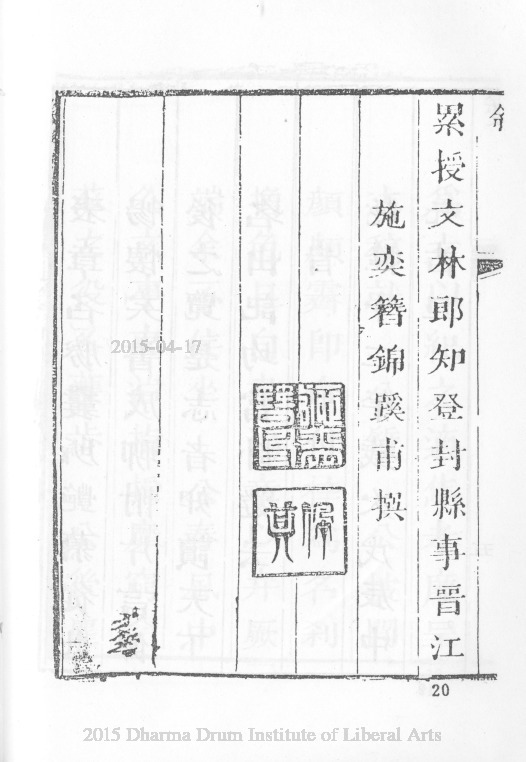 累授文林郎知登封縣事晉江
施奕簪錦蹊甫撰
20
2015-04-17
2015 Dharma Drum Institute of Liberal Arts